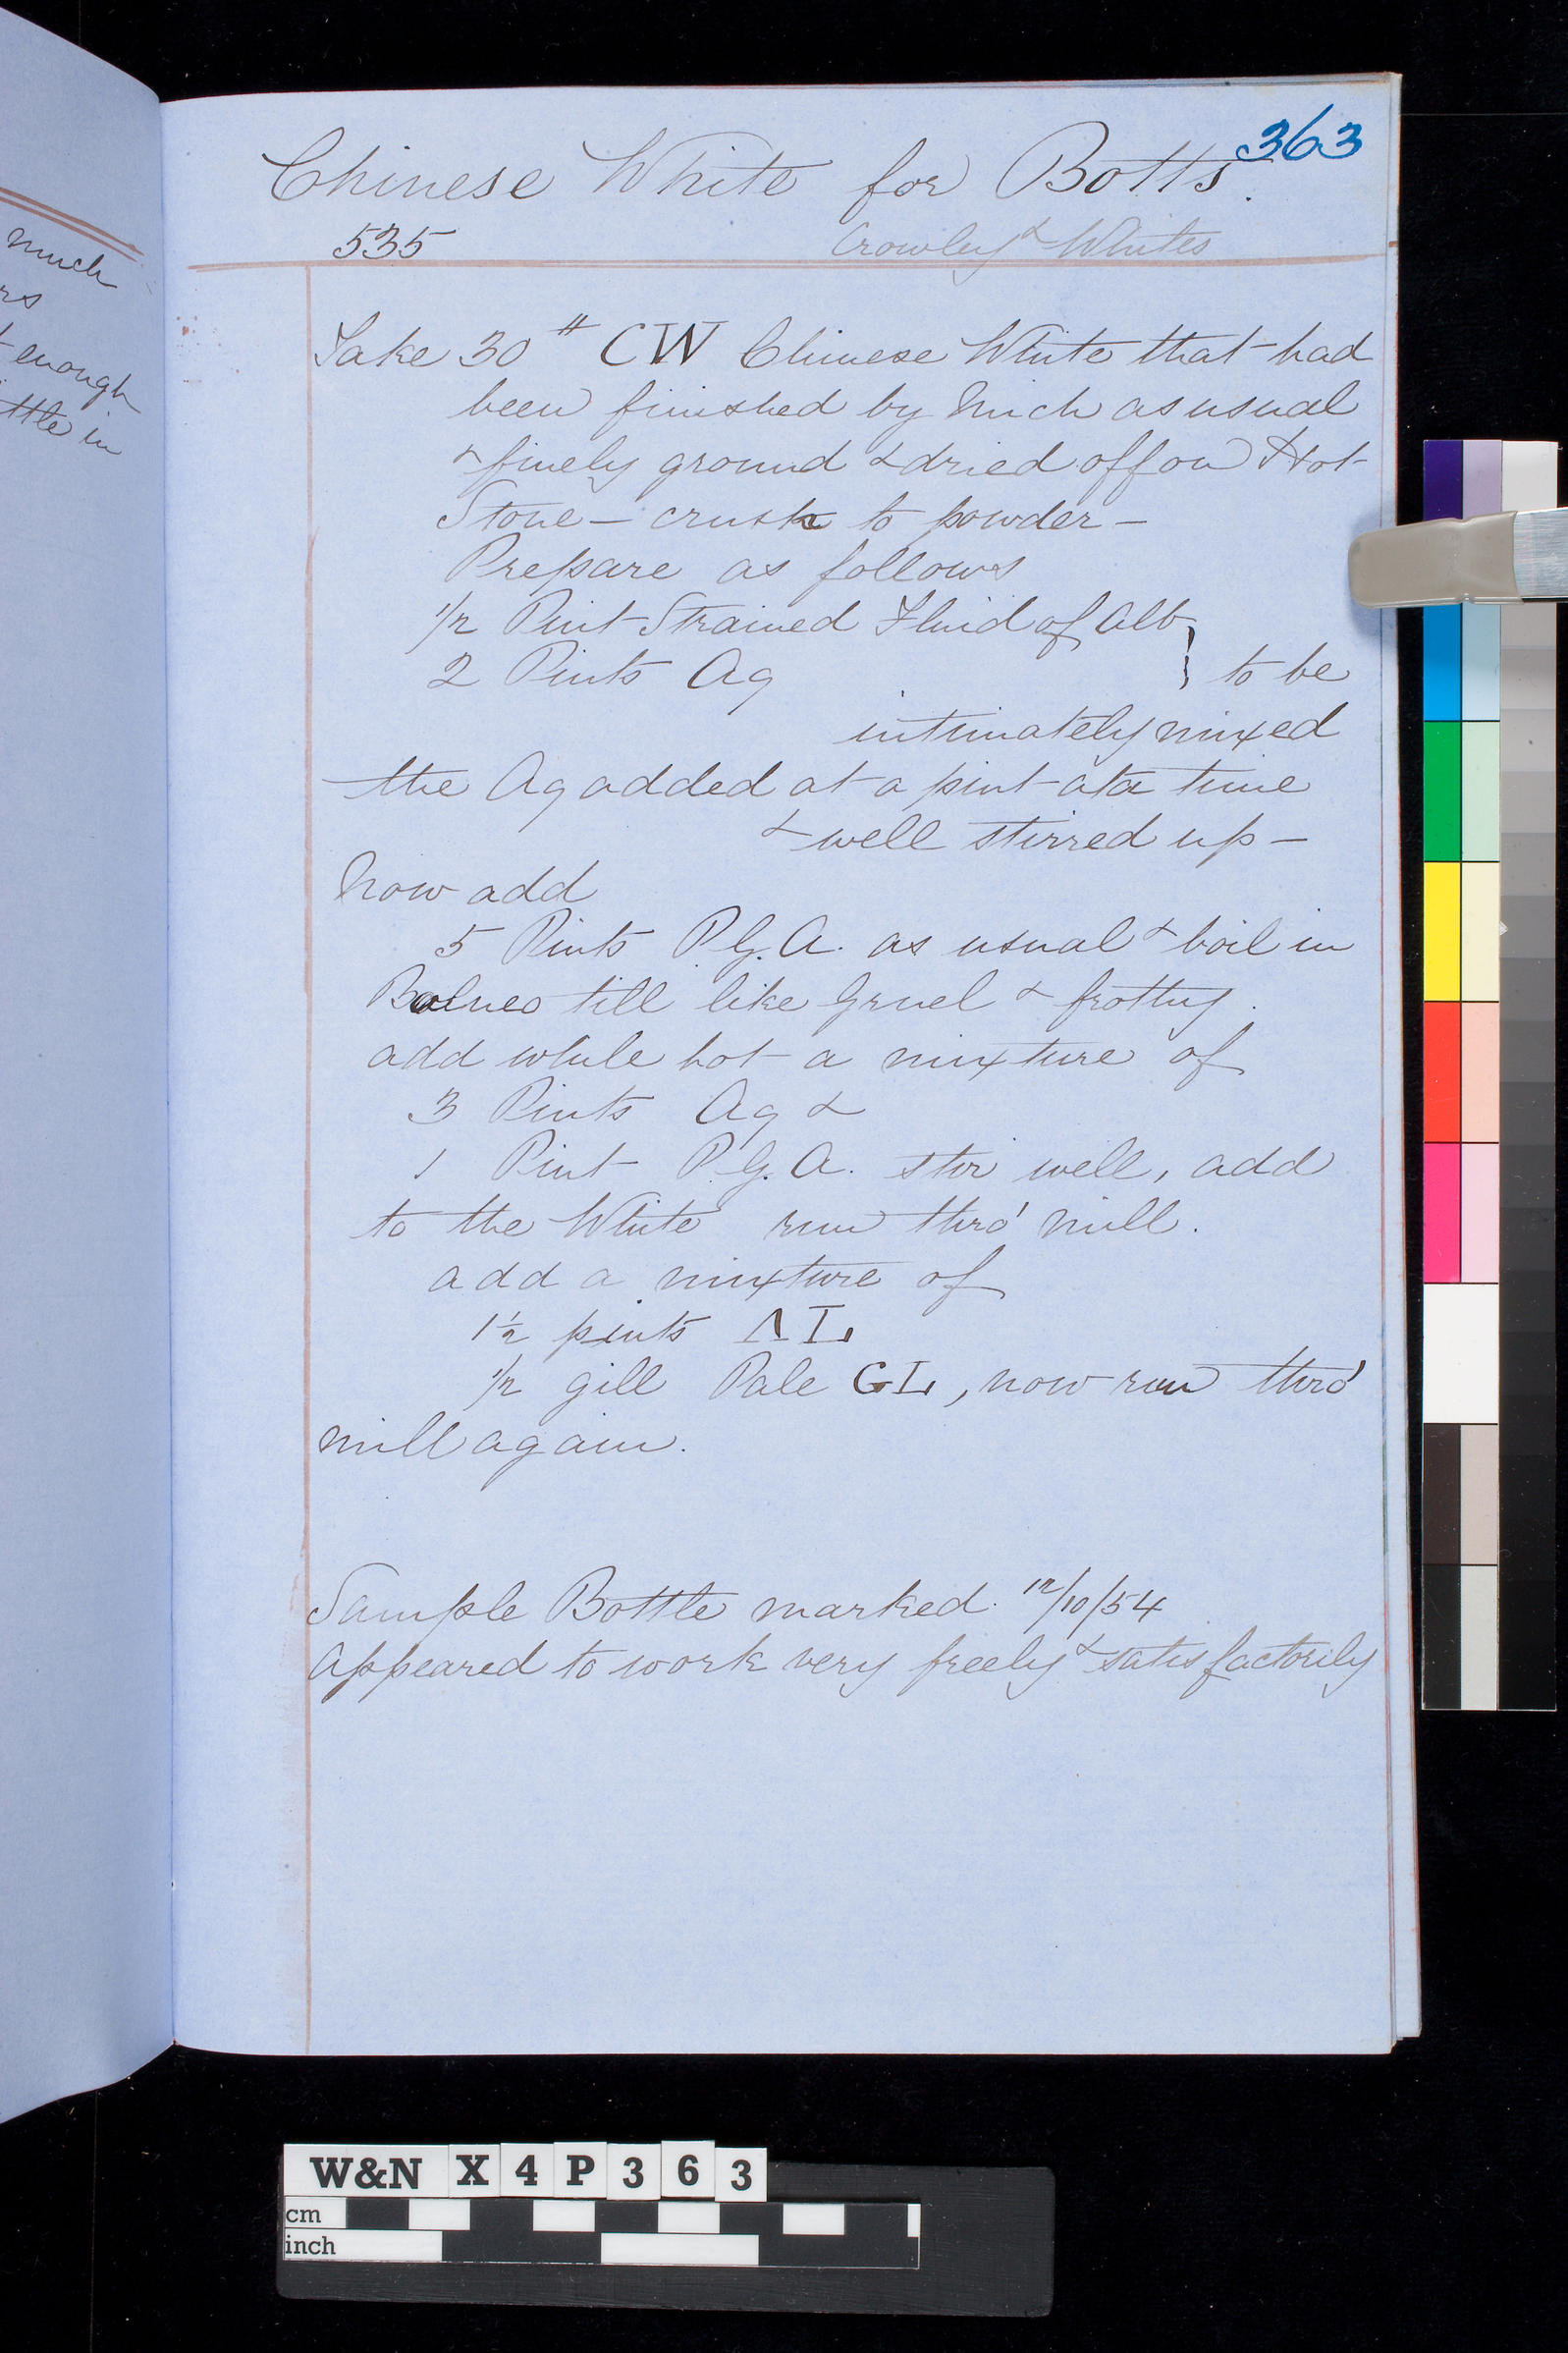 363
Chinese White for Botts.
535 Crowley & Whites
Take 30 # CW Chinese White that had
been finished by Mich as usual
& finely ground & dried off on Hot
Stone - crush to powder -
Prepare as follows
1/2 Pint Strained Fluid of Alb
2 Pints Aq } to be
intimately mixed
the Aq added at a pint at a time
& well stirred up -
Now add
5 Pints P.G.A. as usual & boil in
Balneo till like Gruel & frothy.
add while hot a mixture of
3 Pints Aq &
1 Pint P.G.A. stir well, add
to the White run thro' mill.
add a mixture of
1 1/2 pints ΛL
1/2 gill Pale GL, now run thro'
mill again.
Sample Bottle marked 12/10/54
Appeared to work very freely & satisfactorily
much
rs
t enough
ttle in
W&N X 4 P 3 6 3
cm
inch